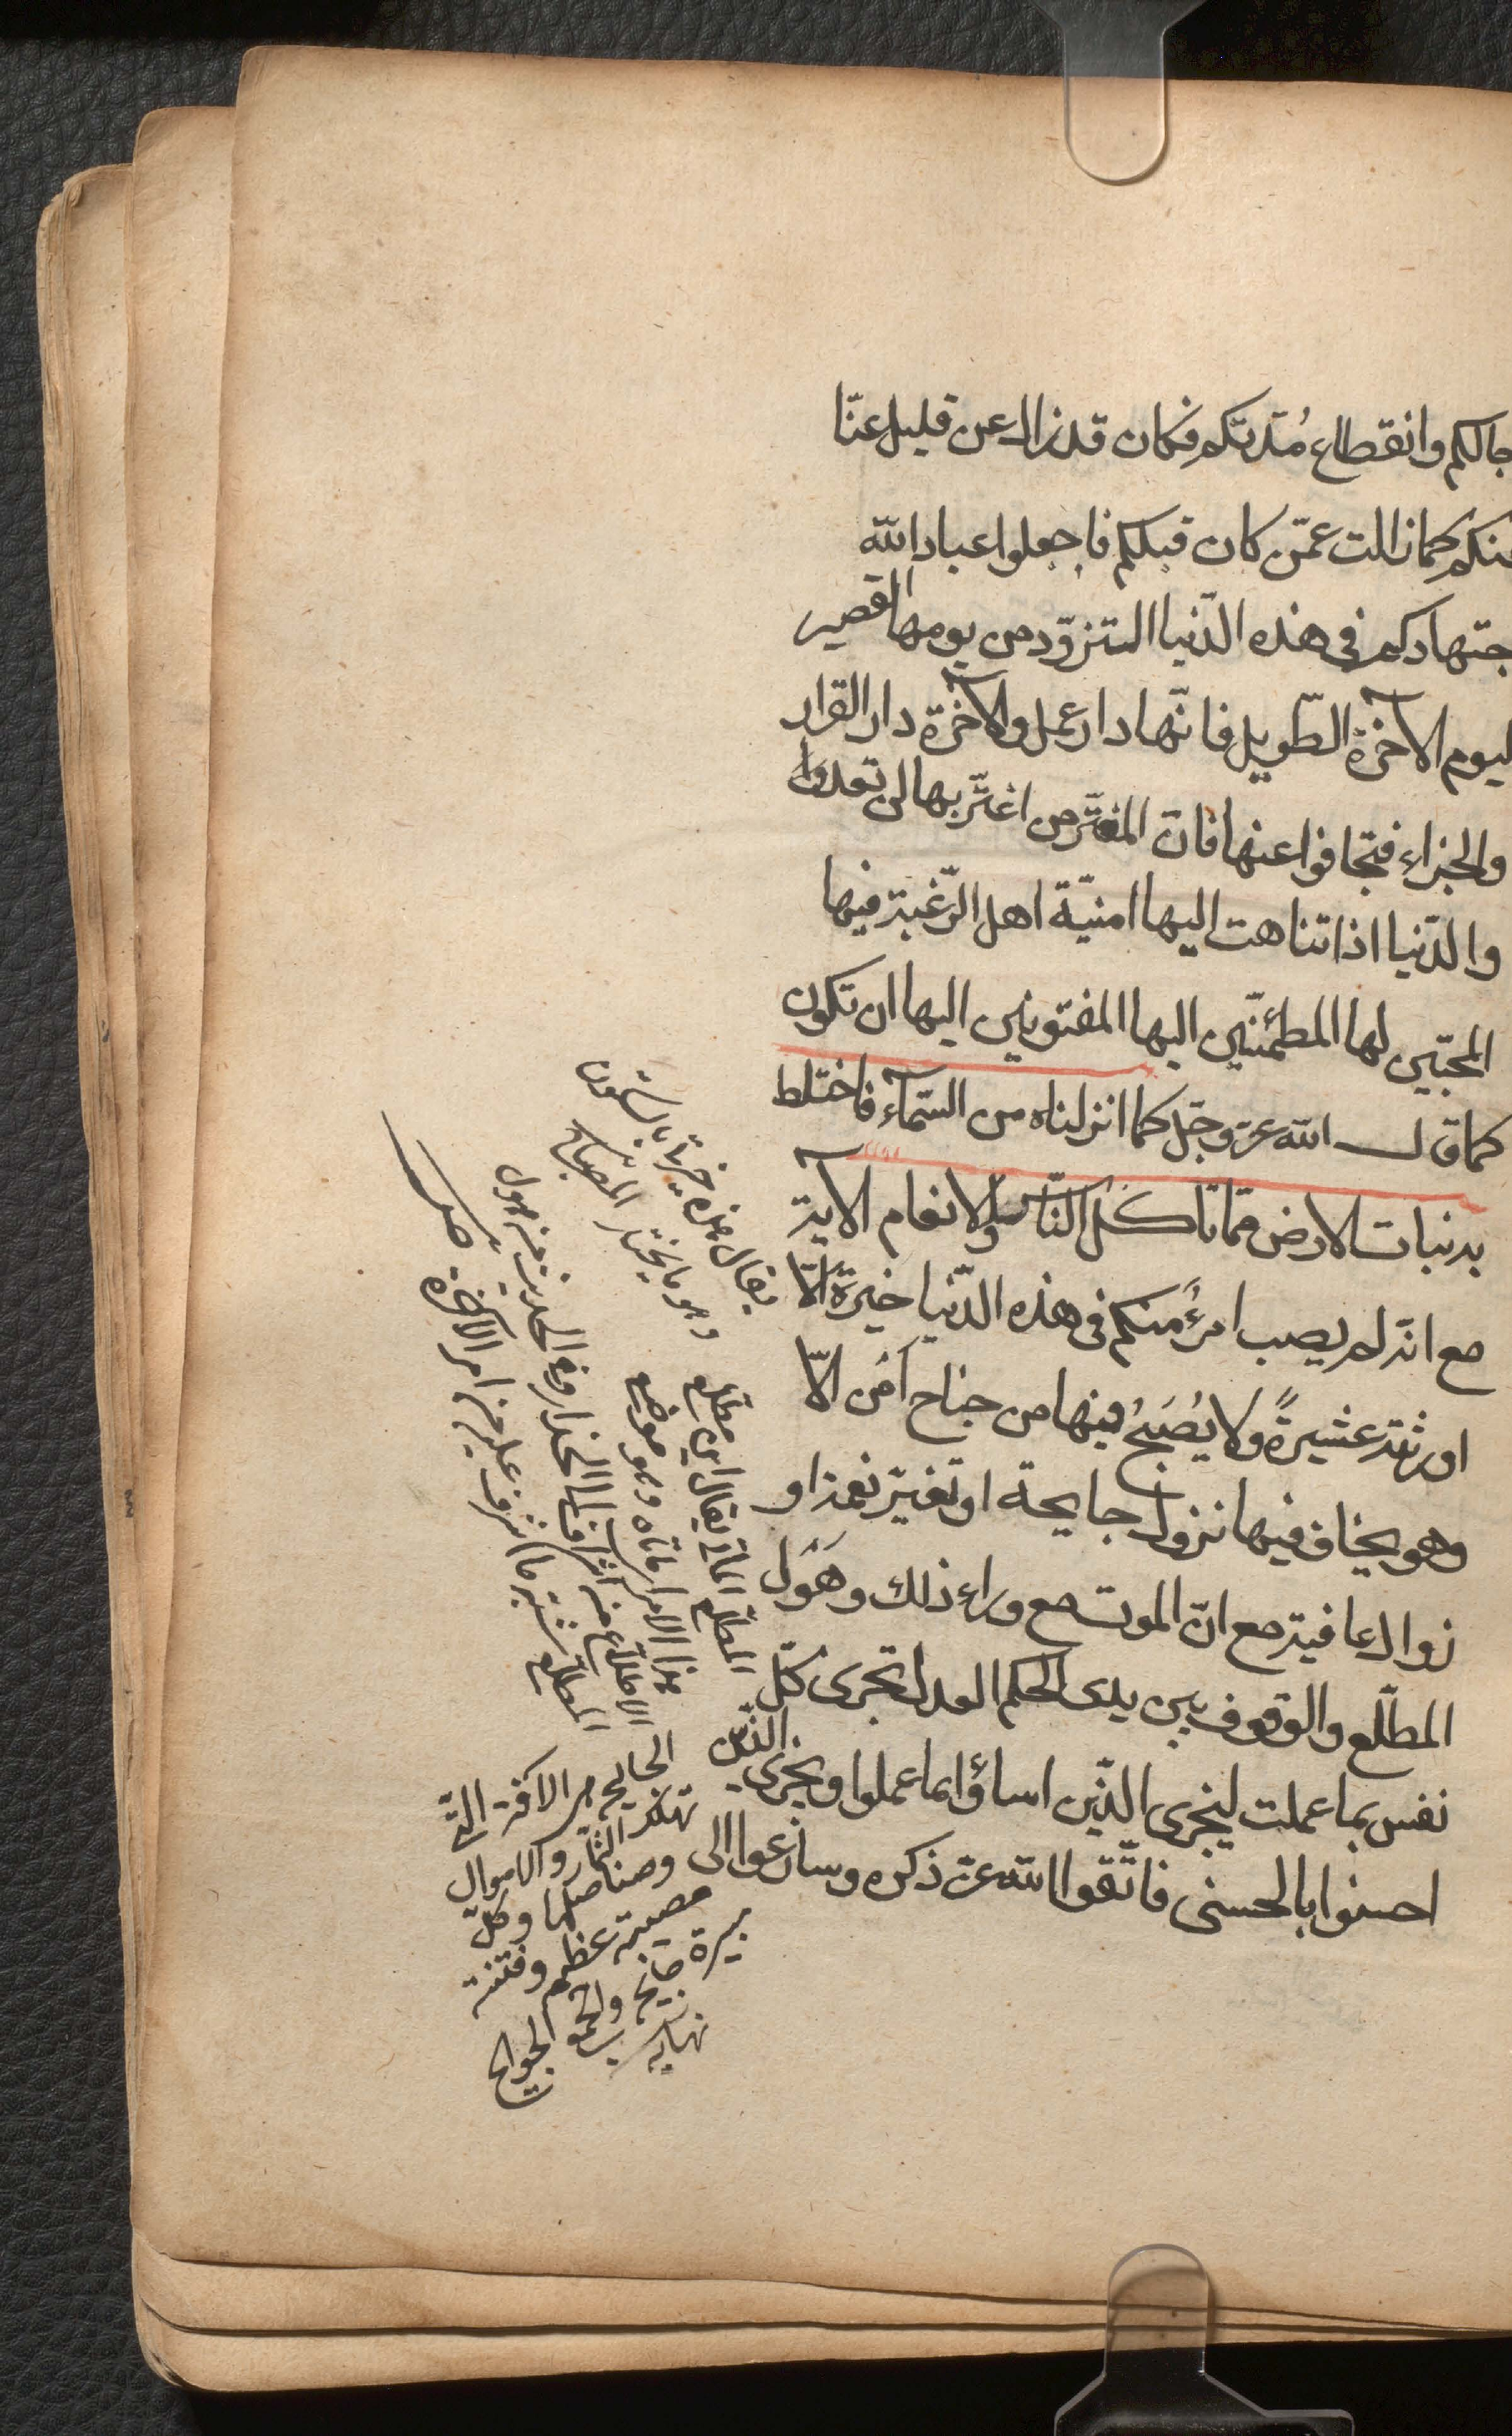 جالكم وانقطاع مُدّتكم فكان قد زال عن قليل عنّا
منكم كما زالت عمّن كان قبلكم فاجعلوا عباد الله
جتهادكم فى هذه الدّنيا التزوّد من يومها القصير
ليوم الآخرة الطّويل فانّها دار عمل والآخرة دار القرار
والجزاء فتجافوا عنها فانّ المغترّ من اغترّ بها لن تعدوا
والدّنيا اذا تناهت اليها امنيّة اهل الرّغبة فيها
المحبّين لها المطمئنّين اليها المفتونين اليها ان تكون
كما قال الله عزّ وجلّ كما انزلناه من السّمآء فاختلط
به نبات الارض ممّا تاكل النّاس والانعام الآية
مع انّه لم يصب امرؤٌ منكم فى هذه الدّنيا خيرةً الّا
اورثته عشيرةً ولا يُصْبِحُ فيها من جناح اَمْن الّا
وهو يخاف فيها نزول جايحة او تغيّر نعمة او
زوال عافية مع انّ الموت مع وراء ذلك وهَوْل
المطّلع والوقوف بين يدى الحكم العدل تجرى كلّ
نفس بما عملت ليجزى الذّين اساؤا بما عملوا ويجزى الذّين
احسنوا بالحسنى فاتّقوا الله عزّ ذكره وسارعوا الى
وهو ما يختار
المطّلع يقال اين مطّلع
هذا الامر اى مأتاه وهو موضع
الاطلاع من اشراف الى انحدار وفى الحديث من هول
المطّلع شبّه ما اشرف عليه من امر الآخرة
الجايحة هى الآفة التى
تهلك الثمار والاموال
وكلّ
مصيبة عظيمة وفتنة
مبيرة جايحة والجمع الجوايح
نهايه